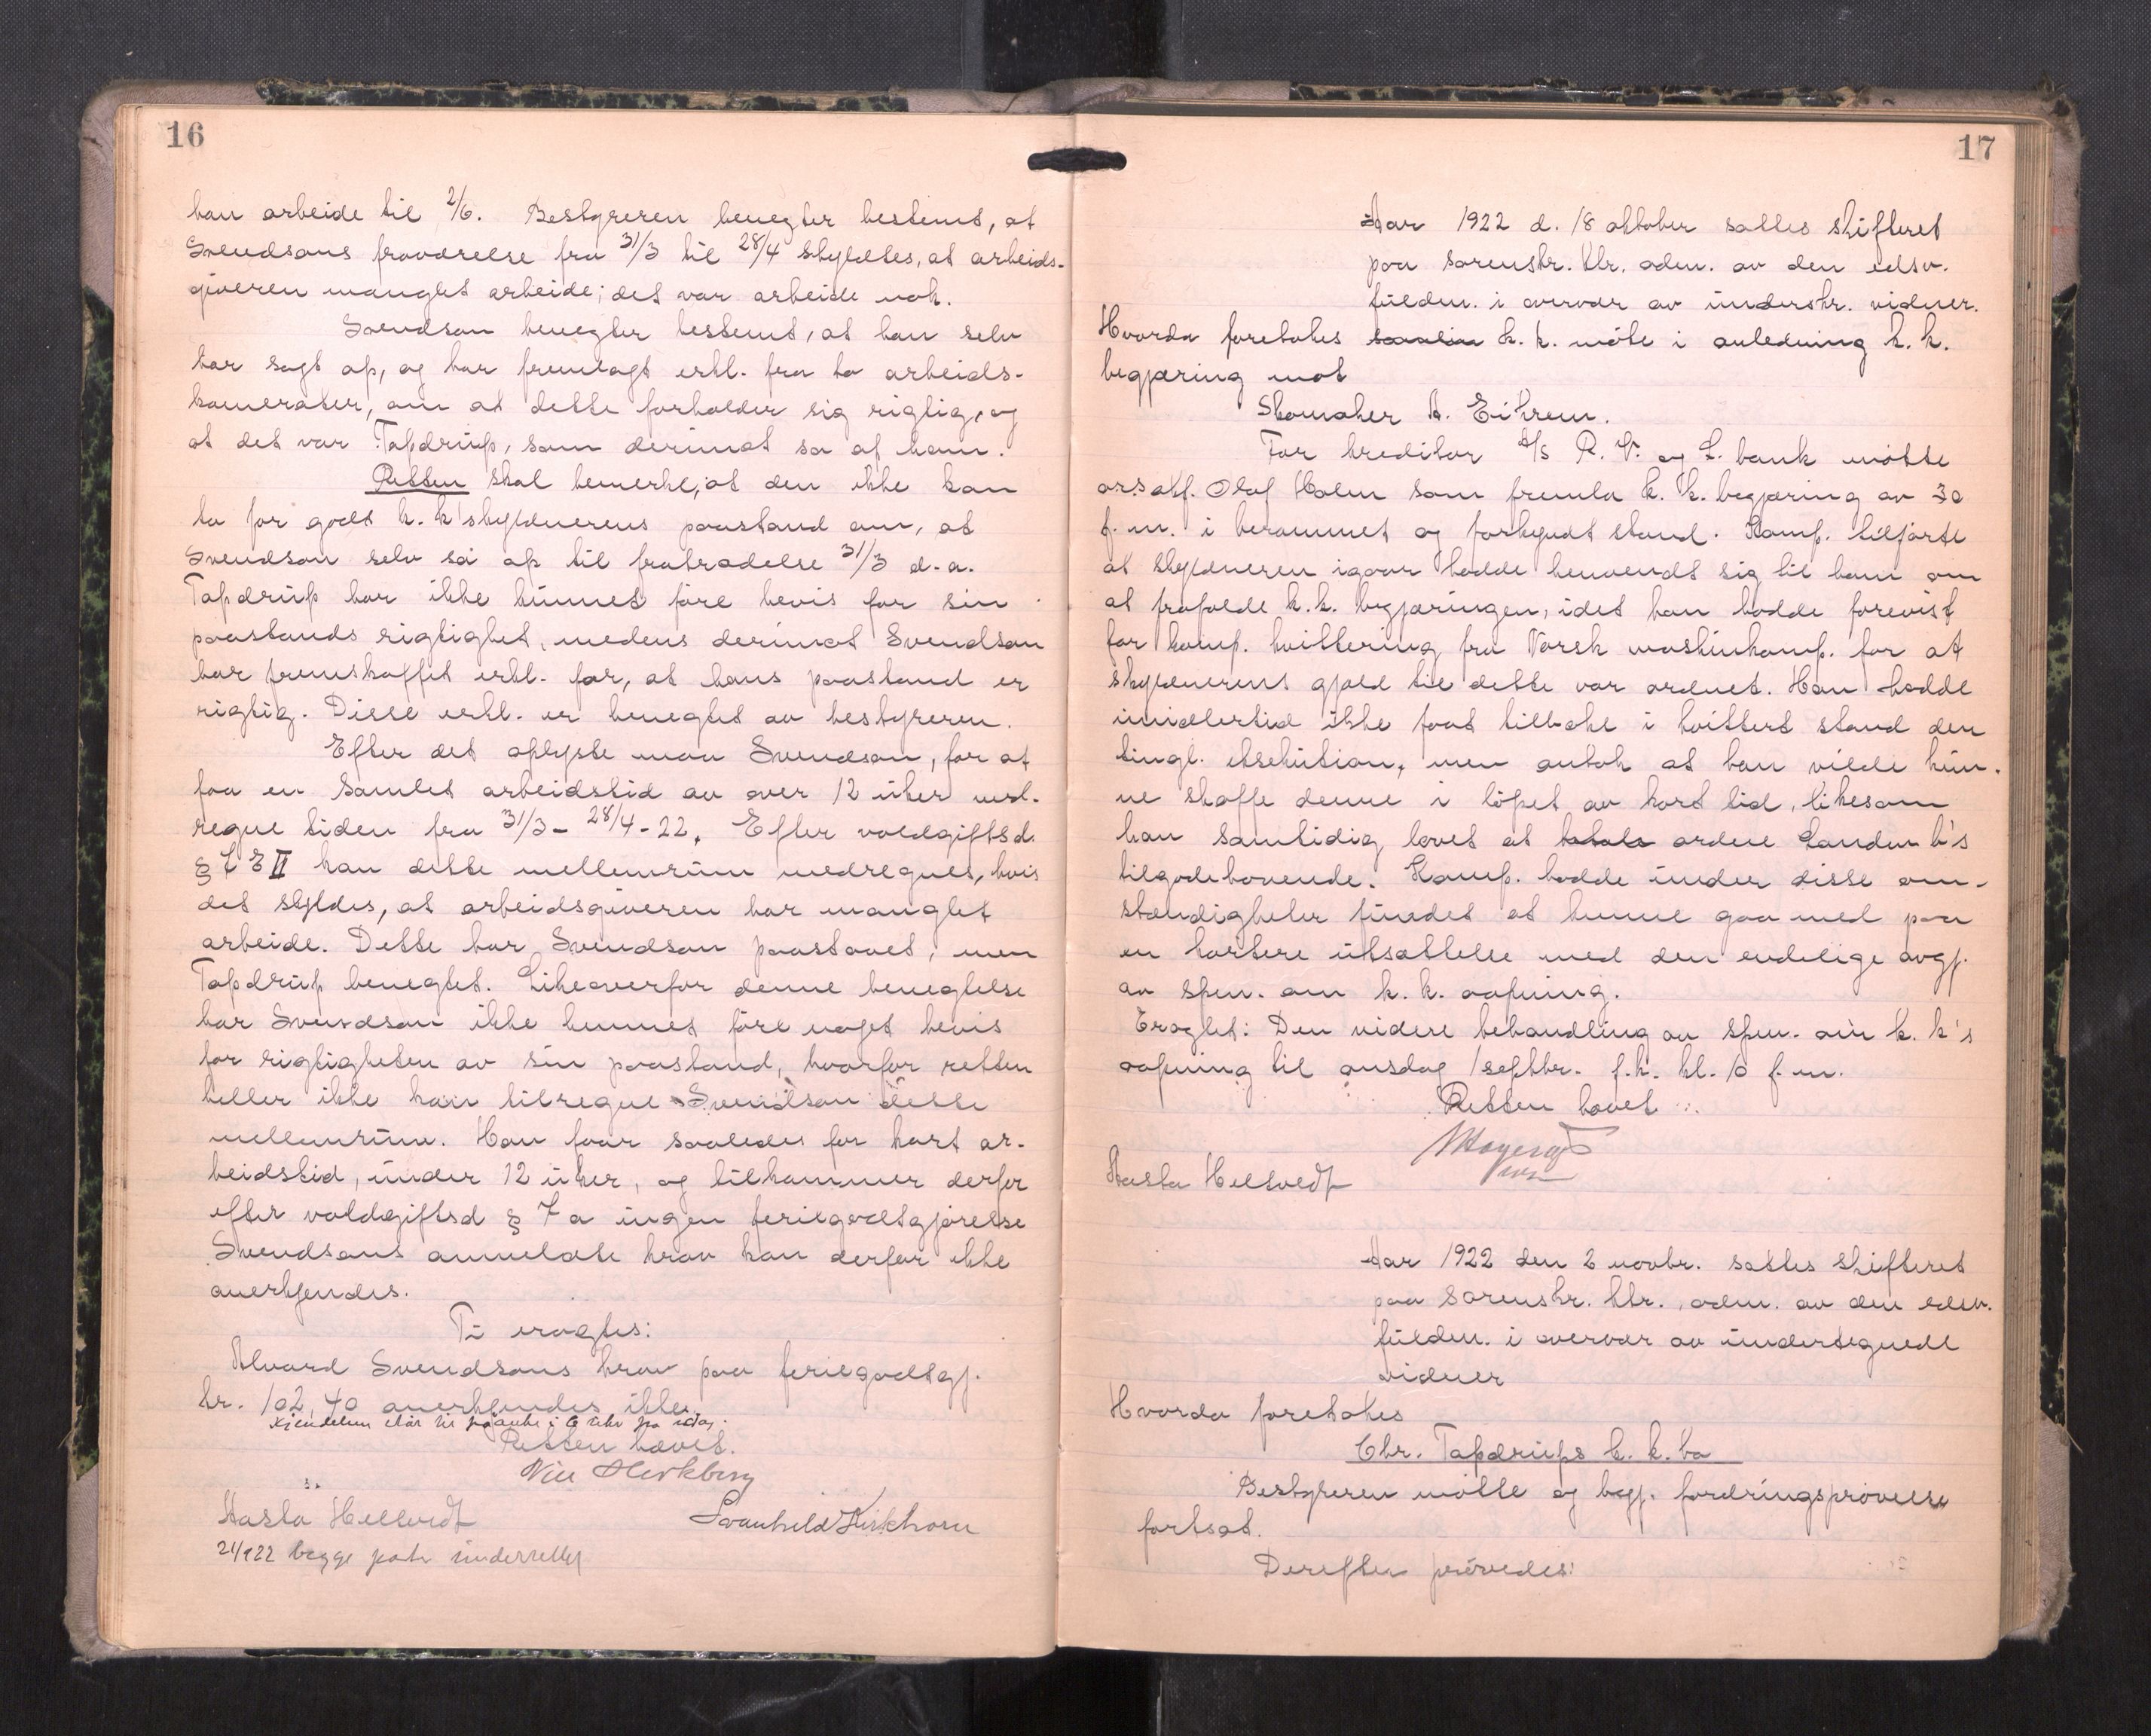 16
han arbeide til 2/6. Bestyreren benegter bestemt, at
Svendsens fraværelse fra 31/3 til 28/4 skyldtes, at arbeids-
giveren manglet arbeide; det var arbeide nok.
Svendsen benegter bestemt, at han selv
har sagt op, og har fremlagt erkl. fra to arbeids-
kamerater, om at dette forholder sig rigtig, og
at det var Tapdrup, som derimot sa op ham.
Retten skal bemerke, at den ikke kan
ta for godt k.k'skyldnerens paastand om, at
Svendsen selv sa op til fratrædelse 31/3 d.a.
Tapdrup har ikke kunnet føre bevis for sin
paastands rigtighet, medens derimot Svendsen
har fremskaffet erkl. for, at hans paastand er
rigtig. Disse erkl. er benegtet av bestyreren.
Efter det oplyste maa Svendsen, for at
faa en samlet arbeidstid av over 12 uker med-
regne tiden fra 31/3 - 28/4 - 22. Efter voldgiftsd.
§ 7 E II kan dette mellemrum medregnes, hvis
det skyldes, at arbeidsgiveren har manglet
arbeide. Dette har Svendsen paastaaet, men
Tapdrup benegtet. Likeoverfor denne benegtelse
har Svendsen ikke kunnet føre noget bevis
for rigtigheten av sin paastand, hvorfor retten
heller ikke kan tilregne Svendsen dette
mellemrum. Han faar saaledes for kort ar-
beidstid, under 12 uker, og tilkommer derfor
efter voldgiftsd § 7 a ingen feriegodtgjørelse
Svendsens anmeldte krav kan derfor ikke
anerkjendes.
Ti eragtes:
Alvard Svendsens krav paa feriegodtgj.
kr. 102,40 anerkjendes ikke.
Kjendelsen står til påanke i 6 uker fra idag.
Retten hævet.
Hasta Hellvedt
Svanhild Kirkhorn
21/922 begge parter underrettet
17
Aar 1922 d. 18 oktober sattes skifteret
paa sorenskr. ktr. adm. av den edsv.
fuldm. i overvær av underskr. vidner.
Hvorda foretokes k.k. møte i anledning k.k.
begjæring mot
Skomaker A. Eikrem.
For kreditor A/S R. V. og L. bank møtte
o.r.sakf. Olaf Holm som fremla k.k. begjæring av 30
f.m. i berammet og forkyndt stand. Komp. tilførte
at skyldneren igaar hadde henvendt sig til ham om
at frafalde k.k. begjæringen, idet han hadde forevist
for komp. kvittering fra Norsk maskinkomp. for at
skyldnerens gjæld til dette var ordnet. Han hadde
imidlertid ikke faat tilbake i kvittert stand den
tingl. eksekution, men antok at han vilde kun-
ne skaffe denne i løpet av kort tid, likesom
han samtidig lovet at ordne Landm b's
tilgodehavende. Komp. hadde under disse om-
stændigheter fundet at kunne gaa med paa
en kortere utsættelse med den endelige avgj.
av spm. om k.k. aapning.
Eragtet: Den videre behandling av spm. om k.k's
aapning til onsdag 1 septbr. f.k. kl. 10 f.m.
Retten hævet
Hasta Hellvedt
Aar 1922 den 2 novbr. sattes skifteret
paa sorenskr. ktr., adm. av den edsv.
fuldm. i overvær av undertegnede
vidner
Hvorda foretokes
Chr. Tapdrups k.k.bo
Bestyreren møtte og begj. fordringsprøvelse
fortsat.
Derefter prøvedes: